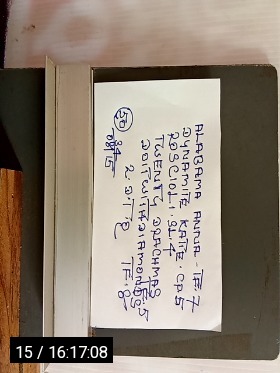 ALABAMA ANNA - TF 7
DYNAMITE KATIE . CP 5
ROSCIOLI . 9L 4
TWENTY DRACHMAS
DO IT WITH DIAMONDS
50
2. DTE TF. 8
15 / 16:17:08